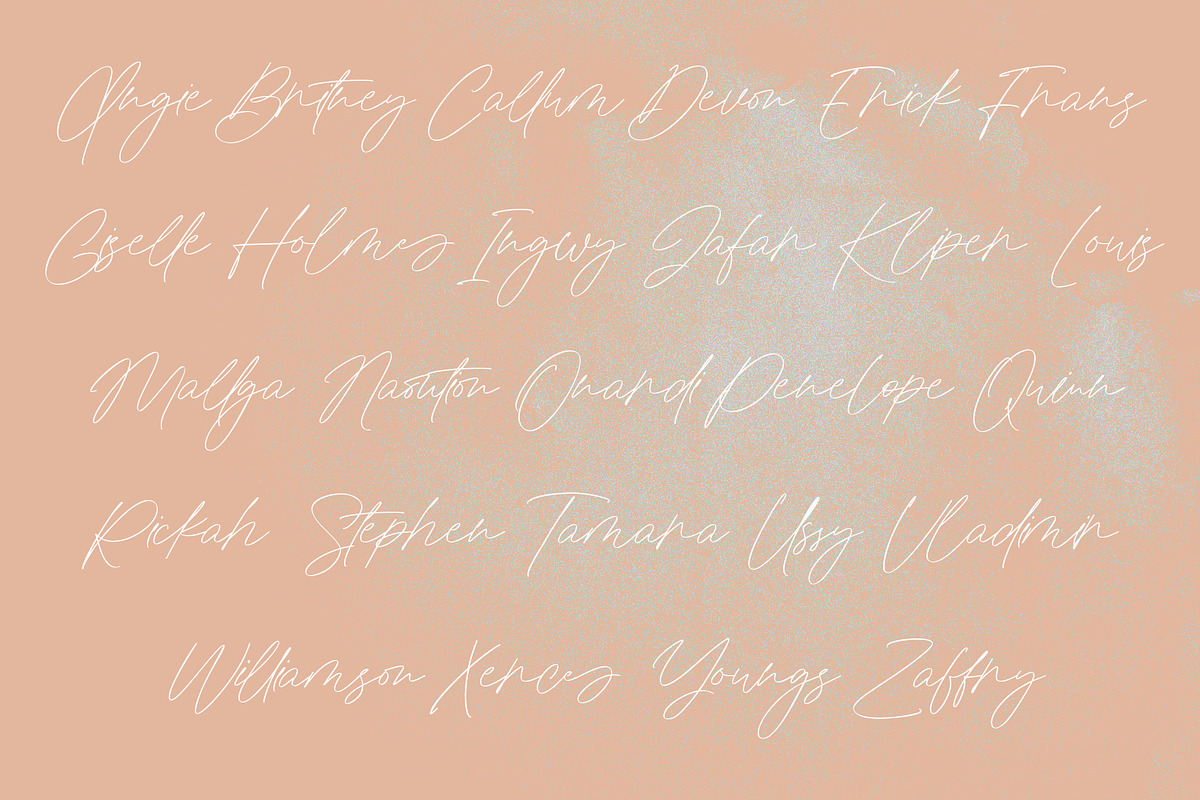 Angie Britney Callum Devon Erick Frans
Giselle Holmes Ingwy Jafar Kliper Louis
Mallga Naoution Orandi Penelope Quinn
Rickah Stephen Tamara Ussy Vladimir
Williamson Xerces Youngs Zaffry